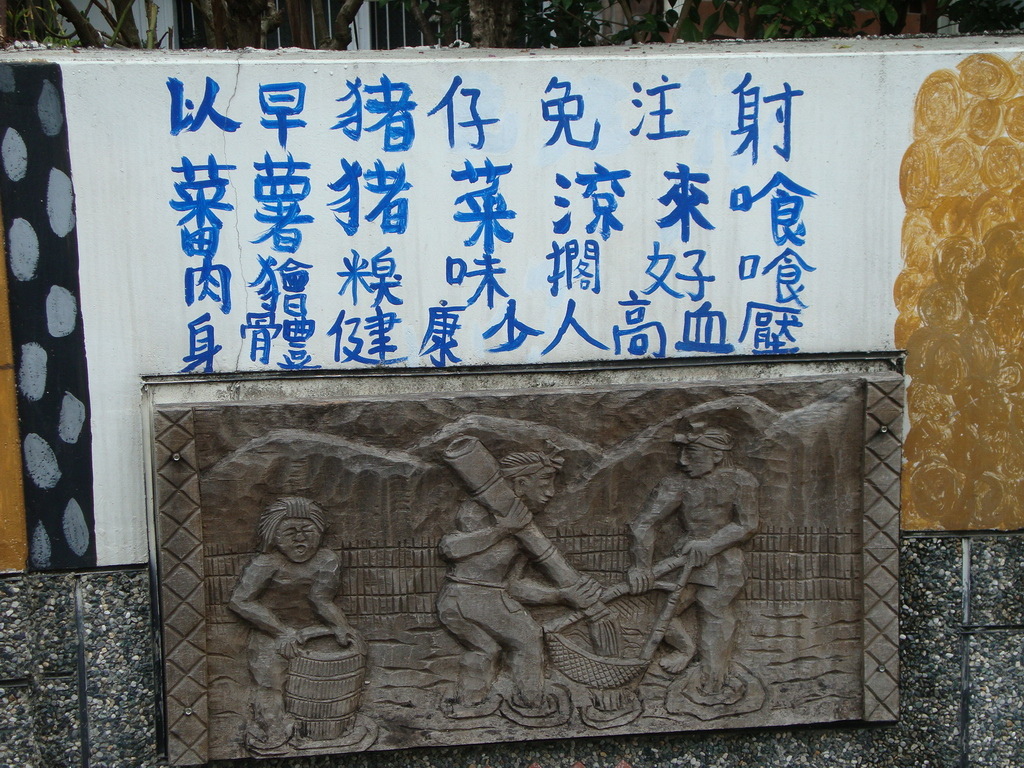 以早猪仔免注射
蕃薯猪菜涼來喰
肉獪糗味擱好喰
身體健康少人高血壓